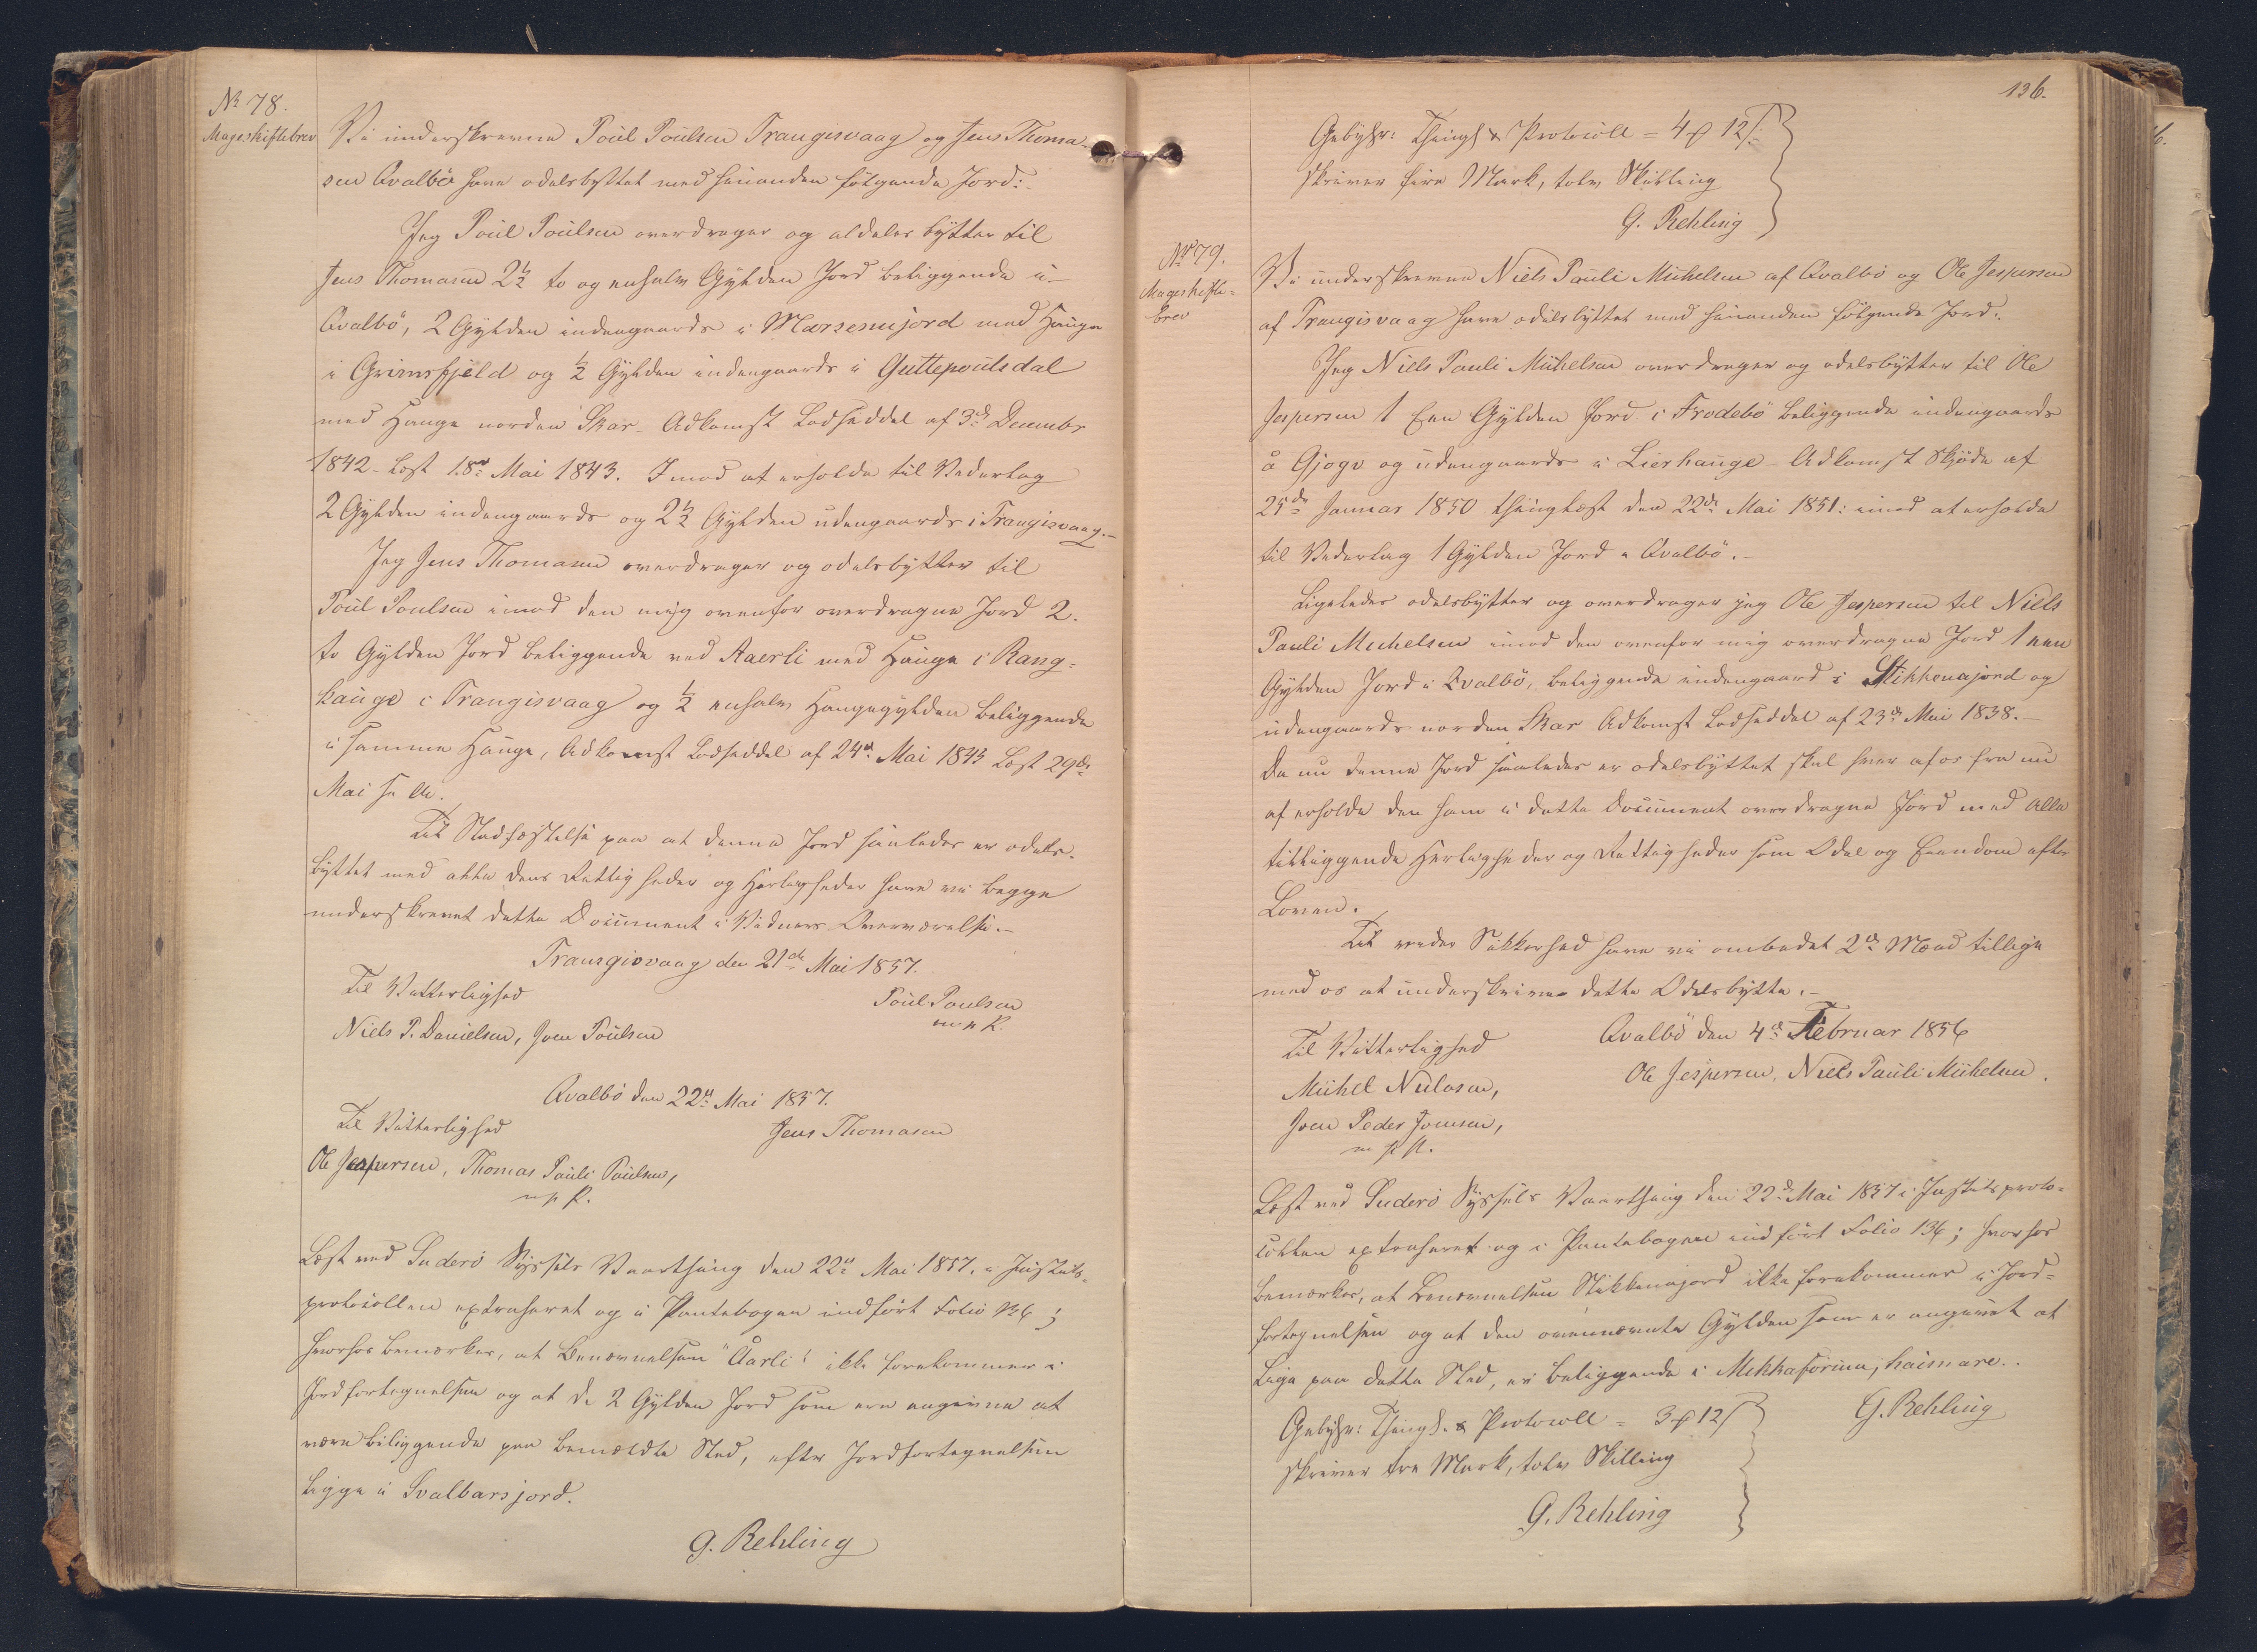 No 78.
Mageskiftebrev
Vi underskrevne Poul Poulsen Trangisvaag og Jens Thoma-
sen Qvalbø have odelsbyttet med hinanden følgende Jord:
Jeg Poul Poulsen overdrager og aldeles bytter til
Jens Thomasen 2½ to og enhalv Gylden Jord beliggende i
Qvalbö, 2 Gylden indengaards i Marsenujord med Hauge
i Grimsfjeld og ½ Gylden indengaards i Guttepoulsdal
med Hauge norden Skar. Adkomst Lodseddel af 3de December
1842 læst 18de Mai 1843. Imod at erholde til Vederlag
2 Gylden indengaards og 2½ Gylden udengaards i Trangisvaag.-
Jeg Jens Thomasen overdrager og odelsbytter til
Poul Poulsen imod den mig ovenfor overdragne Jord 2.
to Gylden Jord beliggende ved Aaerli med Hauge i Rang-
hauge i Trangisvaag og ½ enhalv Haugegylden beliggende
i samme Hauge, Adkomst Lodseddel af 24de Mai 1843 læst 29de
Mai s. A.
Til Stadfæstelse paa at denne Jord saaledes er odels-
byttet med alle dens Rettigheder og Herligheder have vi begge
underskrevet dette Document i Vidners Overværelse.-
Trangisvaag den 21de Mai 1857.
Til Vitterlighed
Poul Poulsen
m. p. P.
Niels P. Danielsen, Joen Poulsen
Qvalbö den 22de Mai 1857.
Til Vitterlighed
Jens Thomasen
Ole Jespersen, Thomas Pauli Poulsen,
m. p. P.
Læst ved Suderö Syssels Vaarthing den 22de Mai 1857, i Justits-
protocollen extraheret og i Pantebogen indført Folio 136;
hvorhos bemærkes, at Benævnelsen "Aarli" ikke forekommer i
Jordfortegnelsen og at de 2 Gylden Jord som ere angivne at
være beliggende paa bemeldte Sted, efter Jordfortegnelsen
ligge i Svalbarsjord.
G. Rehling
136.
Gebyhr: Thingl & Protocoll = 4 12
skriver fire Mark, tolv Skilling
G. Rehling
No 79.
Mageskifte-
brev
Vi underskrevne Niels Pauli Michelsen af Qvalbö og Ole Jespersen
af Trangisvaag have odelsbyttet med hinanden følgende Jord:
Jeg Niels Pauli Michelsen overdrager og odelsbytter til Ole
Jespersen 1 Een Gylden Jord i Frodebö beliggende indengaards
å Gjogv og udengaards i Lierhauge - Adkomst Skjøde af
25de Januar 1850 thinglæst den 22de Mai 1851: imod at erholde
til Vederlag 1 Gylden Jord i Qvalbö.-
Ligeledes odelsbytter og overdrager jeg Ole Jespersen til Niels
Pauli Michelsen imod den ovenfor mig overdragne Jord 1 een
Gylden Jord i Qvalbö, beliggende indengaard i Stikkenajord og
udengaards norden Skar Adkomst Lodseddel af 23de Mai 1838.-
Da nu denne Jord saaledes er odelsbyttet skal hver af os fra nu
af erholde den ham i dette Document overdragne Jord med alle
tilliggende Herligheder og Rettigheder som Odel og Eiendom efter
Loven.
Til videre Sikkerhed have vi ombedet 2de Mænd tillige
med os at underskrive dette Odelsbytte.-
Qvalbö den 4de Februar 1856
Til Vitterlighed
Ole Jespersen, Niels Pauli Michelsen.
Michel Nielasen,
Joen Peder Joensen,
m. p. P.
Læst ved Suderö Syssels Vaarthing den 22de Mai 1857 i Justitsproto-
collen extraheret og i Pantebogen indført Folio 136; hvorhos
bemærkes, at Benævnelsen Stikkenajord ikke forekommer i Jord-
fortegnelsen og at den ovennævnte Gylden som er angivet at
ligge paa dette Sted, er beliggende i Mikkaforina, haimare..
G. Rehling
Gebyhr: Thingl. & Protocoll = 3 12
skriver tre Mark, tolv Skilling
G. Rehling